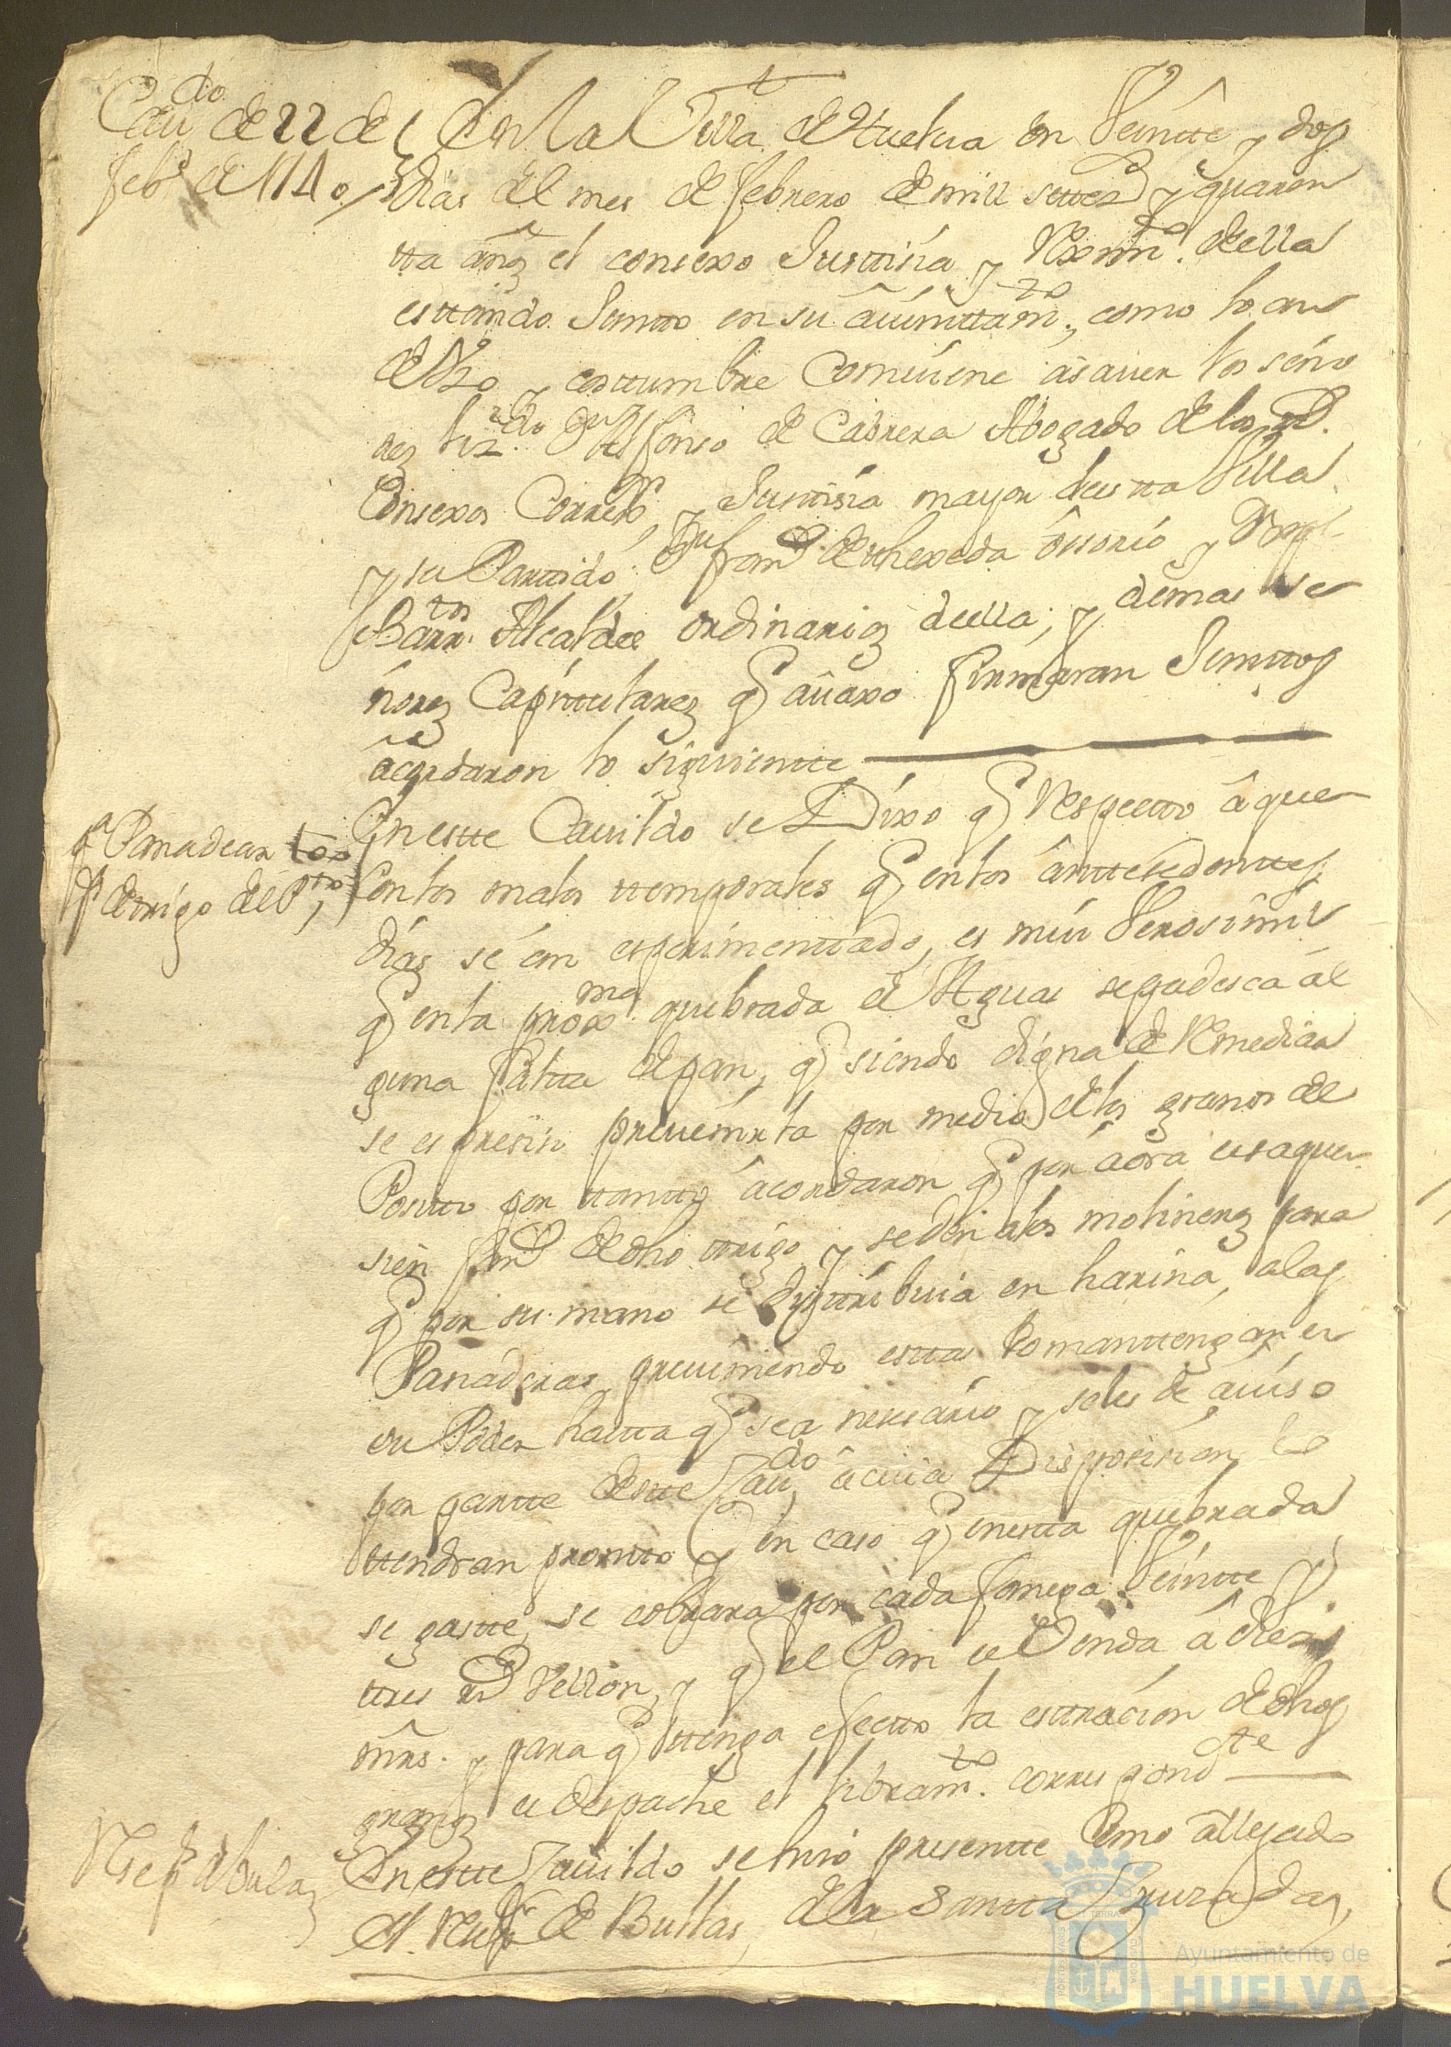 Cavdo de 22 de
febo de 1740
En la Villa de Huelva en Veintte y dos
dias del mes de febrero de mill settezs y quaren
tta añs el consexo Justtisia y Reximto della
esttando Juntto en su aiunttamto, como lo an
de Uso y costtumbre Comviene asaver los seño
res lizdo Dn Alfonso de Cabrera Abogado de los Rs
Consexos Correxor y Justtisia mayor destta Villa
y su Parttido; Dn Franco de thexeda ossorio y
Alcaldes ordinarios della; y demas se
ñores Capittulares q avaxo firmaran Junttos
acordaron lo siguientte
pa Panadear
trigo del Ptto
En estte Cavildo se Dixo q Respectto aque
Con los malos ttemporales q en los anttesedenttes
dias se an esperimenttado, es mui Verosimil
q en la proxma quebrada de Aguas se padesca al
guna faltta de pan, q siendo digna de Remediar
se es presiso prevenirla por medio de los granos del
Positto por ttantto acordaron q por aora se saquen
sien fans de dho ttrigo y se den a los molineros para
q por su mano se disttribuia en harina, a las
Panaderas previniendo esttas lo manttengan en
su Poder hastta q sea nesesario y se les de aviso
por partte destte Cavdo a cuia Disposision lo
ttendran prontto y en caso q en estta quebrada
se gastte, se cobrara por cada fanega Veintte y
ttres Rs Vellon, y q el Pan se Venda a dies
mrs. y para q ttenga efectto la esttracion de dhos
granos se despache el libramto. correspondte
En estte Cavildo se hiso presentte Como a llegado
el de Bullas de la Santta Cruzada,
Ayuntamiento de
HUELVA